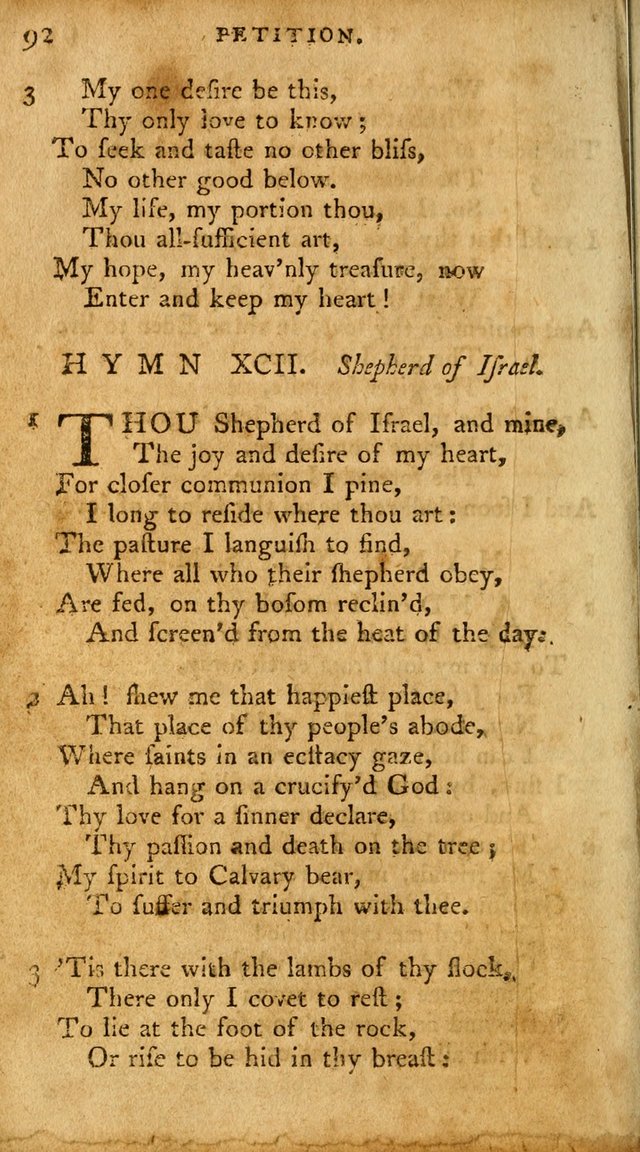 92 PETITION.
3 My one deſire be this,
Thy only love to know;
To ſeek and taſte no other bliſs,
No other good below.
My life, my portion thou,
Thou all-ſufficient art,
My hope, my heav'nly treaſure, now
Enter and keep my heart!
HYMN XCII. Shepherd of Iſrael.
1 THOU Shepherd of Iſrael, and mine,
The joy and deſire of my heart,
For cloſer communion I pine,
I long to reſide where thou art:
The paſture I languiſh to find,
Where all who their ſhepherd obey,
Are fed, on thy boſom reclin'd,
And ſcreen'd from the heat of the day.
2 Ah! ſhew me that happieſt place,
That place of thy people's abode,
Where ſaints in an ecſtacy gaze,
And hang on a crucify'd God:
Thy love for a ſinner declare,
Thy paſſion and death on the tree;
My ſpirit to Calvary bear,
To ſuffer and triumph with thee.
3 'Tis there with the lambs of thy flock,
There only I covet to reſt;
To lie at the foot of the rock,
Or riſe to be hid in thy breaſt: